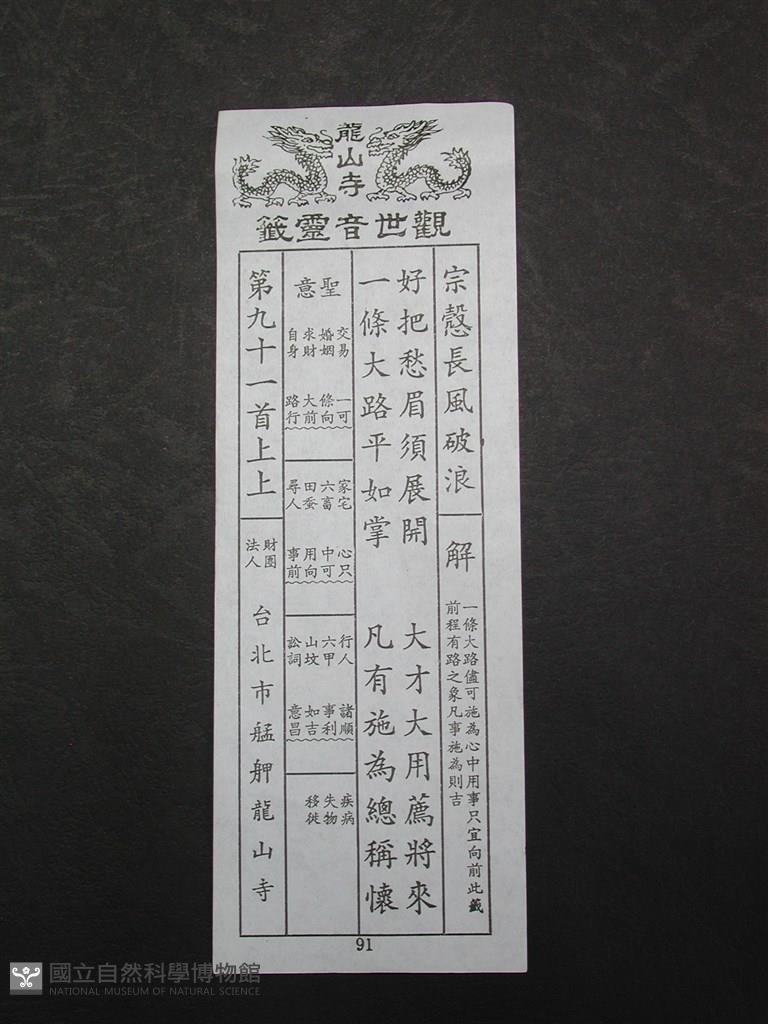 龍山寺
觀世音靈籤
宗慤長風破浪
解
一條大路儘可施為心中用事只宜向前此籤
前程有路之象凡事施為則吉
好把愁眉須展開 大才大用薦將來
一條大路平如掌 凡有施為總稱懷
聖意
交易 婚姻 求財 自身
一條大路
可向前行
家宅 六畜 田蚕 尋人
心中用事
只可向前
行人 六甲 山坟 訟詞
諸事如意
順利吉昌
疾病 失物 移徙
第九十一首上上
財團法人
台北市艋舺龍山寺
91
國立自然科學博物館
NATIONAL MUSEUM OF NATURAL SCIENCE